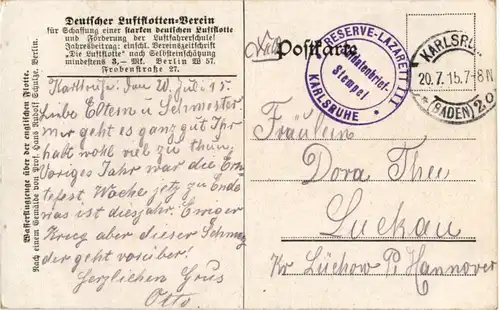 Deutscher Luftflotten-Verein
für Schaffung einer starken deutschen Luftflotte
und Förderung der Luftfahrerschule!
Jahresbeitrag: einschl. Vereinszeitschrift
"Die Luftflotte" nach Selbsteinschätzung
mindestens 3,— Mk. Berlin W 57.
Frobenstraße 27.
Karlsruhe. Den 20. Juli. 15.
Liebe Eltern u. Schwester
mir geht es ganz gut Ihr
habt wohl viel zu thun.
Voriges Jahr war die Ern-
tefest. Woche jetz zu Ende
was ist diesjahr. Ewiger
Krieg aber dieser Schmerz
der geht vorüber!
Herzlichen Grus
Otto.
Wasserflugzeuge über der englischen Flotte.
Nach einem Gemälde von Prof. Hans Rudolf Schulze, Berlin.
Postkarte
RESERVE-LAZARETT III
Soldatenbrief-
Stempel
KARLSRUHE
KARLSRUHE
20.7.15.7-8N
(BADEN) 2
Fräulein
Dora Thee
Luckau
Kr Lüchow P. Hannover